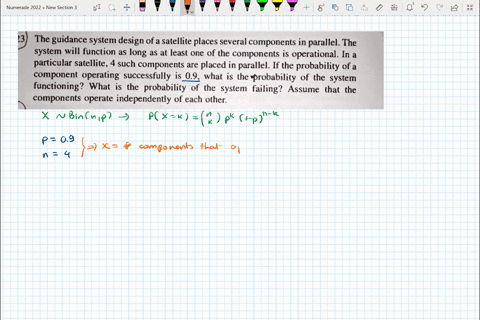 Numerade 2022 » New Section 3
23) The guidance system design of a satellite places several components in parallel. The
system will function as long as at least one of the components is operational. In a
particular satellite, 4 such components are placed in parallel. If the probability of a
component operating successfully is 0.9, what is the probability of the system
functioning? What is the probability of the system failing? Assume that the
components operate independently of each other.
X ~ Bin(n,p) → P(X=k) = (n k) p^k (1-p)^n-k
p = 0.9
n = 4 } ⇒ X = # components that o